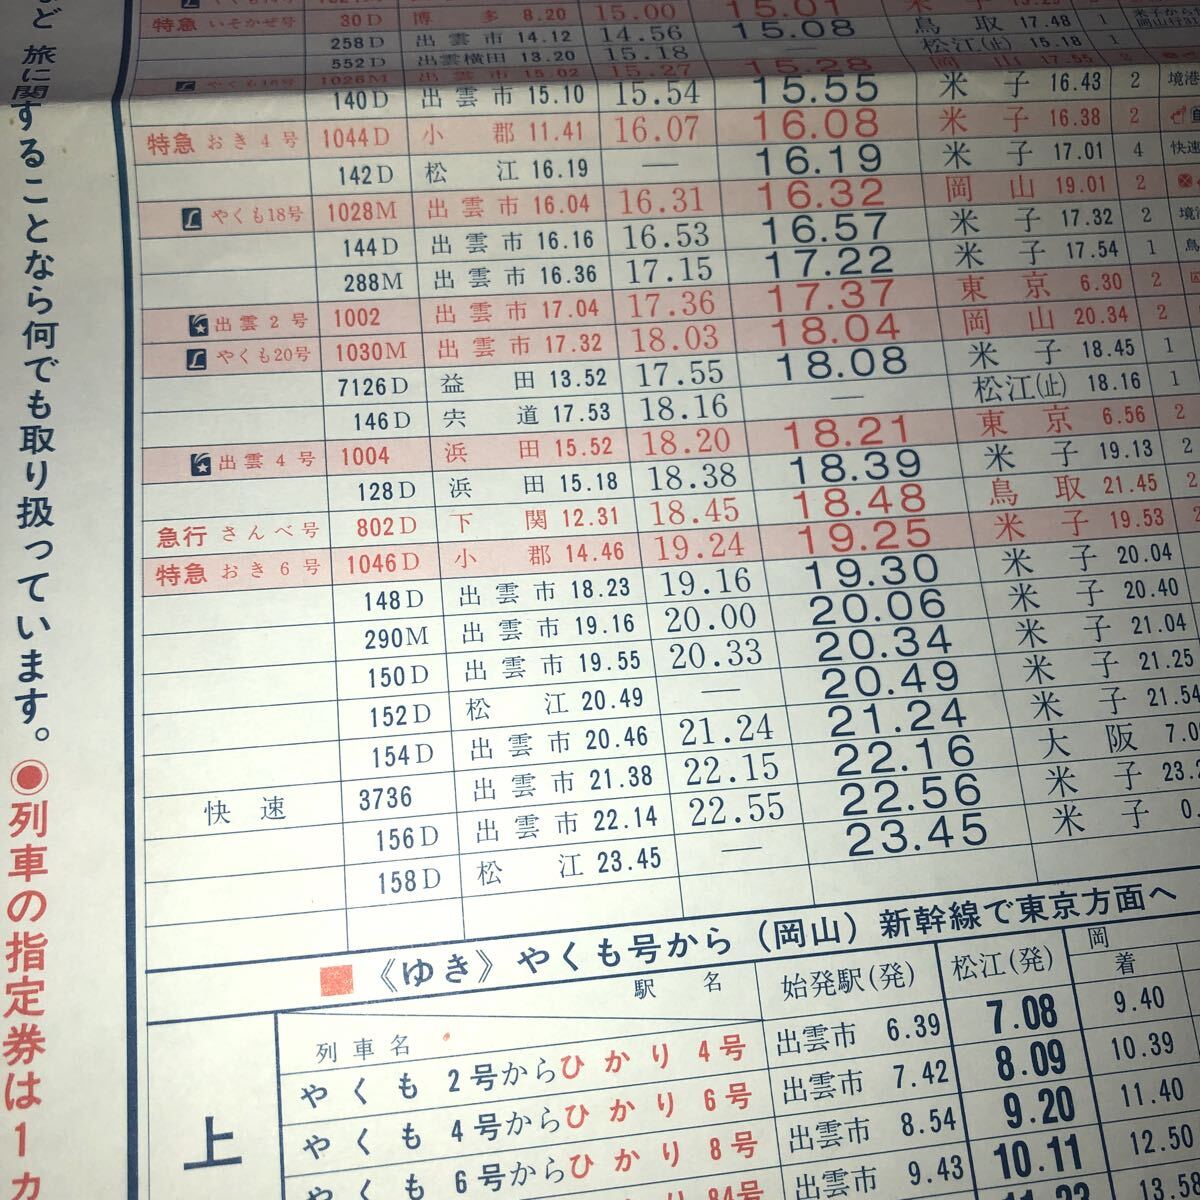 など 旅に関することなら何でも取り扱っています。
◉列車の指定券は1カ
特急 いそかぜ号 30D 博多 8.20 15.00 15.01 米子
258D 出雲市 14.12 14.56 15.08 鳥取 17.48 1
552D 出雲横田 13.20 15.18 — 松江(止) 15.18 1
やくも16号 1026M 出雲市 15.02 15.27 15.28 岡山 17.55 2
140D 出雲市 15.10 15.54 15.55 米子 16.43 2 境港
特急 おき4号 1044D 小郡 11.41 16.07 16.08 米子 16.38 2
142D 松江 16.19 — 16.19 米子 17.01 4 快速
L やくも18号 1028M 出雲市 16.04 16.31 16.32 岡山 19.01 2
144D 出雲市 16.16 16.53 16.57 米子 17.32 2 境港
288M 出雲市 16.36 17.15 17.22 米子 17.54 1 鳥
出雲2号 1002 出雲市 17.04 17.36 17.37 東京 6.30 2
L やくも20号 1030M 出雲市 17.32 18.03 18.04 岡山 20.34 2
7126D 益田 13.52 17.55 18.08 米子 18.45 1
146D 宍道 17.53 18.16 — 松江(止) 18.16 1
出雲4号 1004 浜田 15.52 18.20 18.21 東京 6.56 2
128D 浜田 15.18 18.38 18.39 米子 19.13 2
急行 さんべ号 802D 下関 12.31 18.45 18.48 鳥取 21.45 2
特急 おき6号 1046D 小郡 14.46 19.24 19.25 米子 19.53 2
148D 出雲市 18.23 19.16 19.30 米子 20.04
290M 出雲市 19.16 20.00 20.06 米子 20.40
150D 出雲市 19.55 20.33 20.34 米子 21.04
152D 松江 20.49 — 20.49 米子 21.25
154D 出雲市 20.46 21.24 21.24 米子 21.54
快速 3736 出雲市 21.38 22.15 22.16 大阪 7.0
156D 出雲市 22.14 22.55 22.56 米子 23.2
158D 松江 23.45 — 23.45 米子 0.
■《ゆき》やくも号から(岡山)新幹線で東京方面へ
駅名 始発駅(発) 松江(発) 岡 着
列車名
上
やくも 2号からひかり 4号 出雲市 6.39 7.08 9.40
やくも 4号からひかり 6号 出雲市 7.42 8.09 10.39
やくも 6号からひかり 8号 出雲市 8.54 9.20 11.40
84号 出雲市 9.43 10.11 12.50